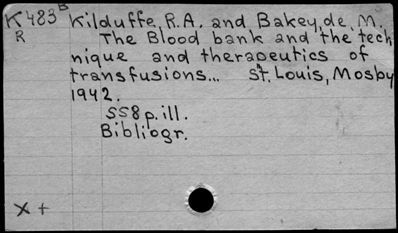 K483B Kilduffe, R.A. and Bakey, de, M.
R The Blood bank and the tech
nique and therapeutics of
transfusions... St. Louis, Mosby
1942.
558 p. ill.
Bibliogr.
X +